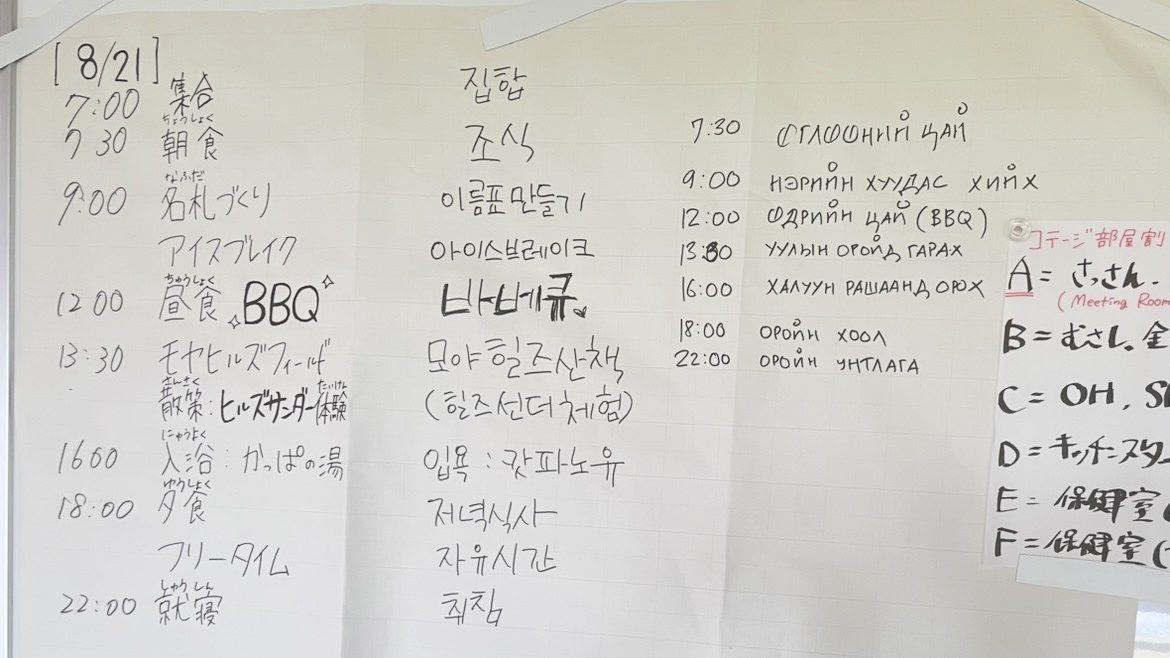 [8/21]
7:00 集合 집합
ちょうしょく
7 30 朝食 조식
なふだ
9:00 名札づくり 이름표 만들기
アイスブレイク 아이스브레이크
ちゅうしょく
12 00 昼食 BBQ 바베큐
13:30 モヤヒルズフィールド 모야힐즈산책
さんさく たいけん
散策:ヒルズサンダー体験 (힐즈선더체험)
にゅうよく
1600 入浴:かっぱの湯 입욕:캇파노유
ゆうしょく
18:00 夕食 저녁식사
フリータイム 자유시간
しゅうしん
22:00 就寝 취침
7:30 ӨГЛӨӨНИЙ ЦАЙ
9:00 НЭРИЙН ХУУДАС ХИЙХ
12:00 ӨДРИЙН ЦАЙ (BBQ)
13:30 УУЛЫН ОРОЙД ГАРАХ
16:00 ХАЛУУН РАШААНД ОРОХ
18:00 ОРОЙН ХООЛ
22:00 ОРОЙН УНТЛАГА
コテージ部屋割
A = さっさん.
(Meeting Room
B = むさし. 金
C = OH,
D = キッチンスタ
E = 保健室
F = 保健室(